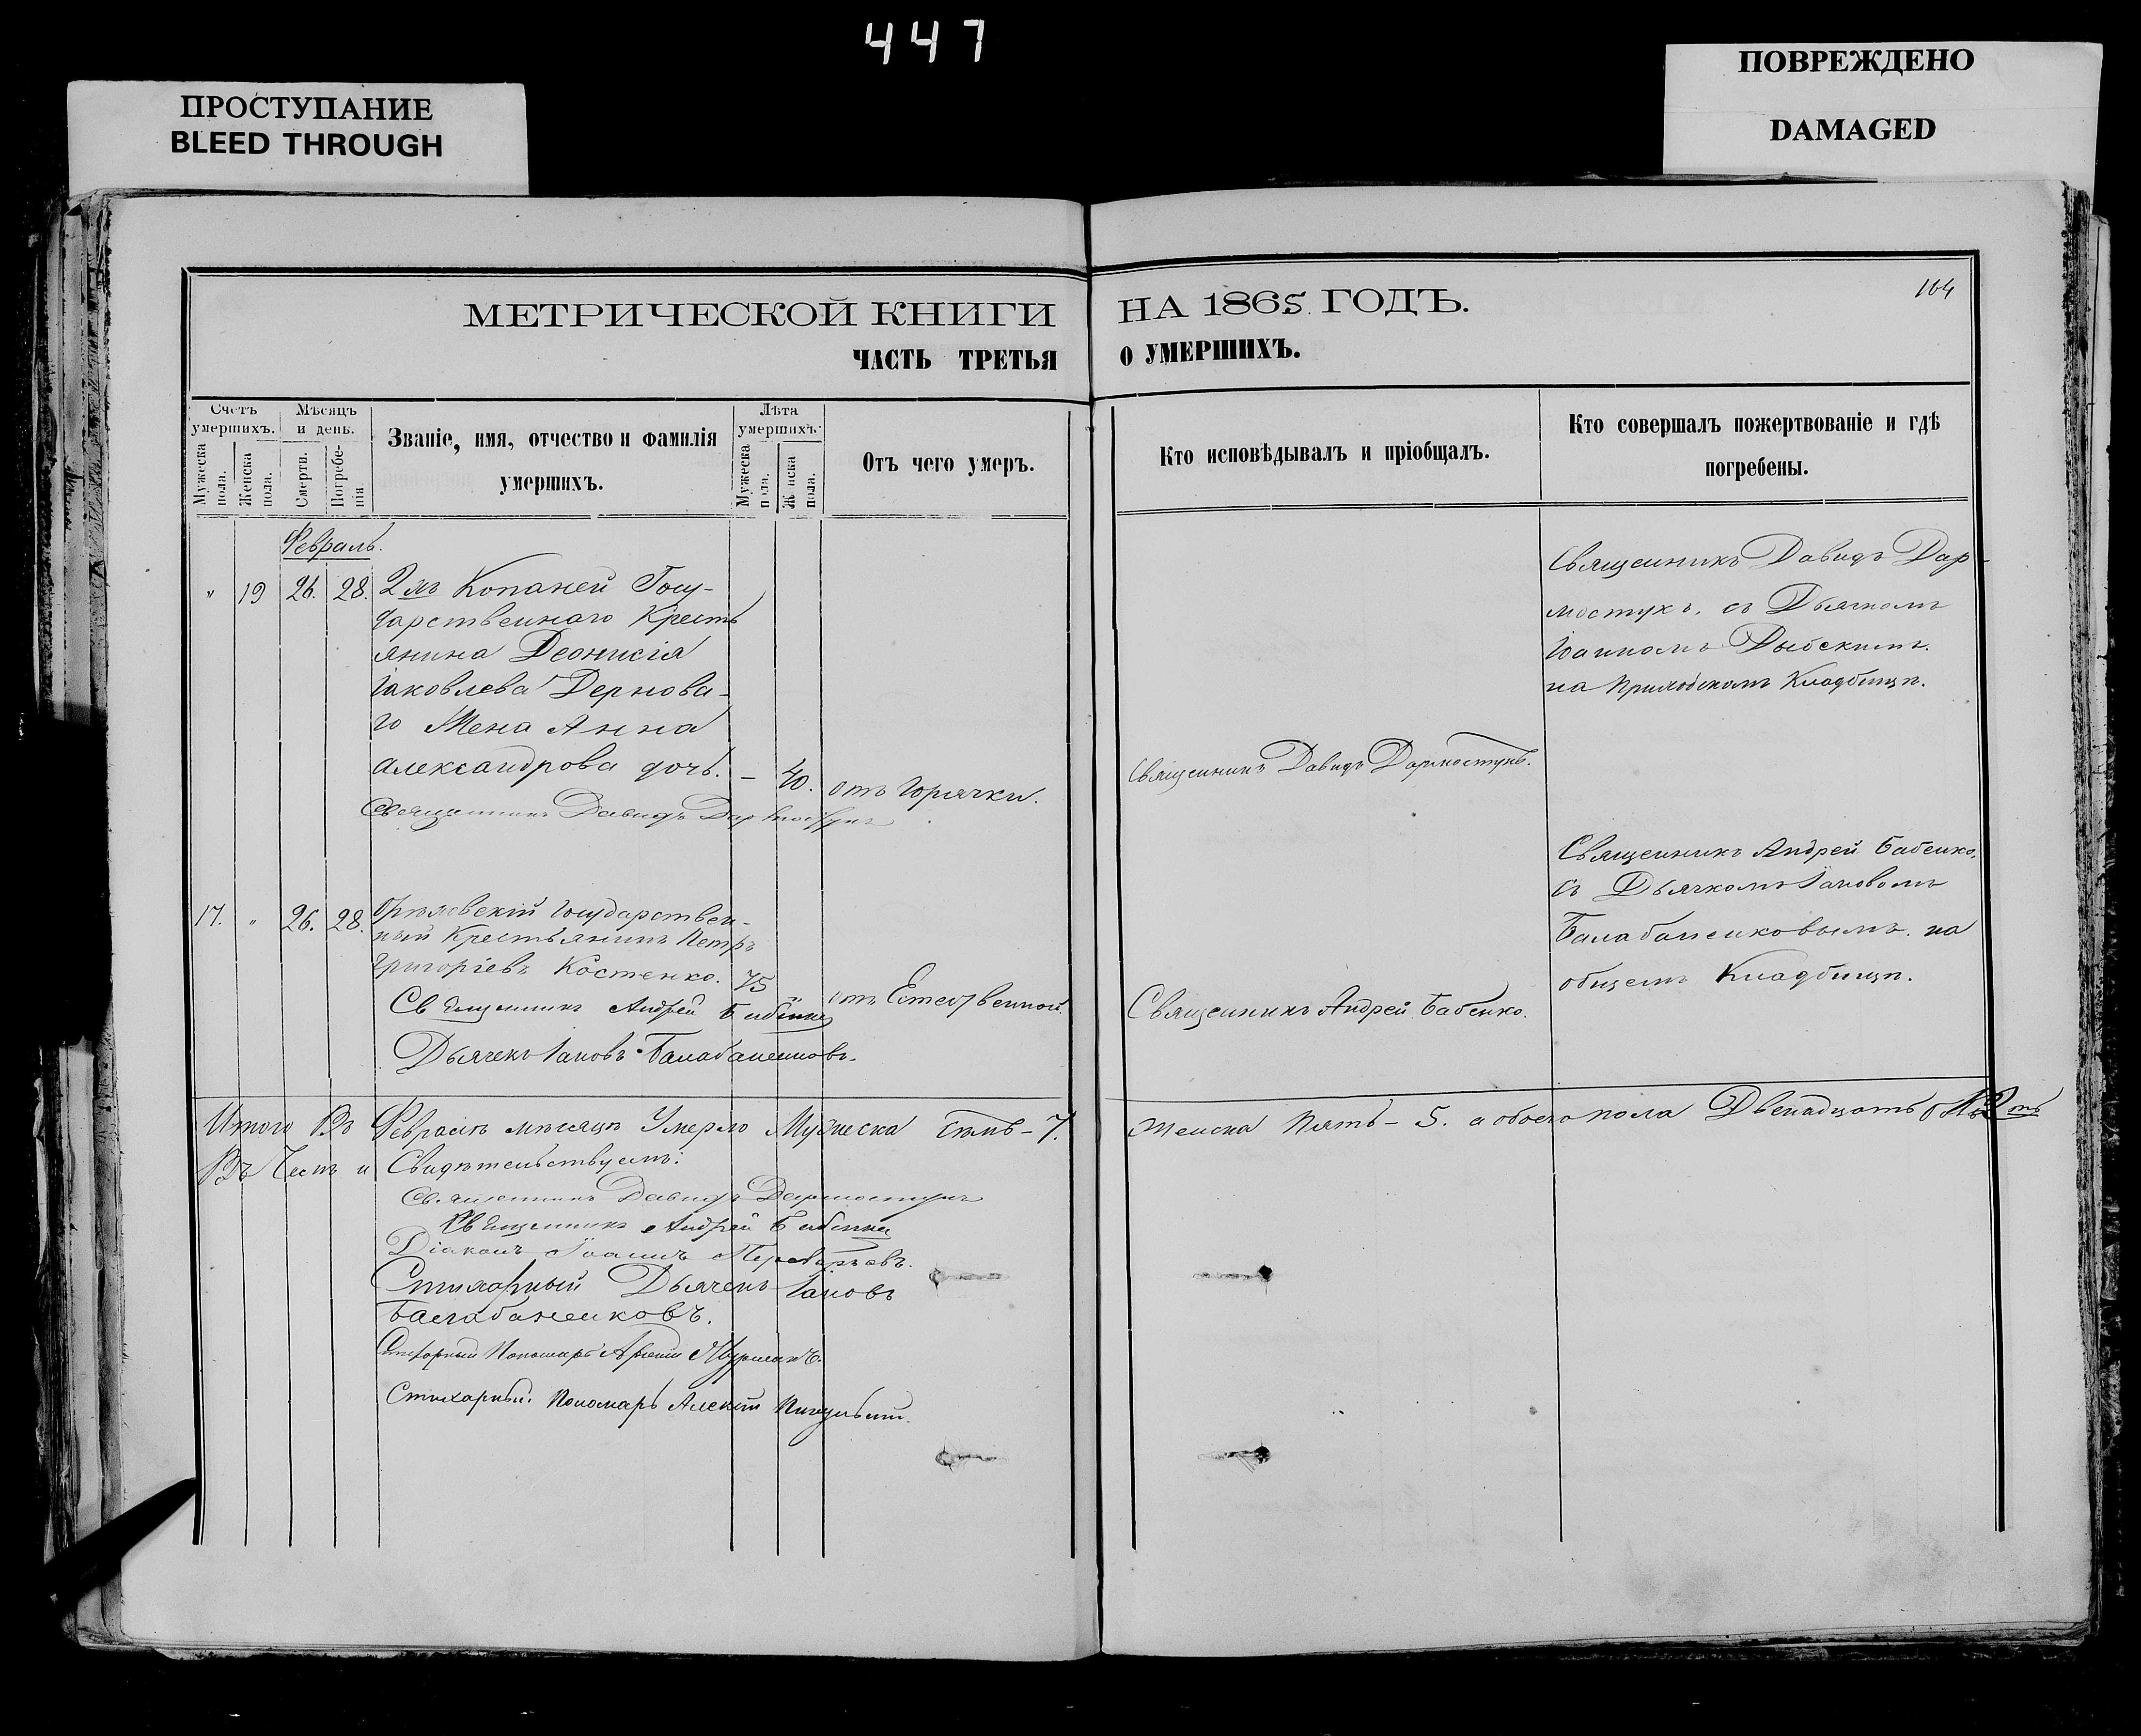 447
ПРОСТУПАНИЕ
BLEED THROUGH
ПОВРЕЖДЕНО
DAMAGED
164
МЕТРИЧЕСКОЙ КНИГИ НА 1865 ГОДЪ.
ЧАСТЬ ТРЕТЬЯ О УМЕРШИХЪ.
Счетъ умершихъ.
Мужеска пола.
Женска пола.
Мѣсяцъ и день.
Смерти.
Погребенія
Званіе, имя, отчество и фамилія
умершихъ.
Лѣта умершихъ.
Мужеска пола.
Женска пола.
Отъ чего умеръ.
Кто исповѣдывалъ и пріобщалъ.
Кто совершалъ пожертвованіе и гдѣ
погребены.
Февраль.
" 19 26. 28. Копаней Госу-
дарственнаго Кресть
янина Деонисія
Іаковлева Дернова-
го Жена Анна
Александрова дочь. – 40. отъ Горячки.
Священникъ Давидъ Дармостукъ
Священникъ Давидъ Дармостукъ.
Священникъ Давидъ Дар-
мостукъ, съ Дьячкомъ
Іоанномъ
на Приходскомъ Кладбищѣ.
17. " 26. 28. Государствен-
ный Крестьянинъ Петръ
Григоріевъ Костенко. 75 отъ Естественной.
Священникъ Андрей Бабенко
Дьячекъ Іаковъ Балабаненковъ.
Священникъ Андрей Бабенко.
Священникъ Андрей Бабенко,
съ Дьячкомъ Іаковомъ
Балабаненковымъ. на
общемъ Кладбищѣ.
Итого Въ Февралѣ мѣсяцѣ Умерло Мужеска семь – 7. Женска Пять – 5. а обоего пола Двенадцать
Въ Чемъ и Свидѣтельствуемъ:
Священникъ Давидъ Дармостукъ
Священникъ Андрей Бабенко
Діаконъ Іоаннъ
Стихарный Дьячекъ Іаковъ
Балабаненковъ.
Стихарный Пономарь
Стихарный Пономарь Алексій